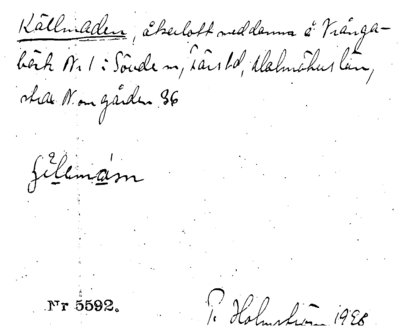 Källmaden, åkerlott nedanna å Vränga-
bäck Nr 1 i Sövde sn, Färs hd, Malmöhus län,
strax N om gården 36
Nr 5592. T. Holmström 1928